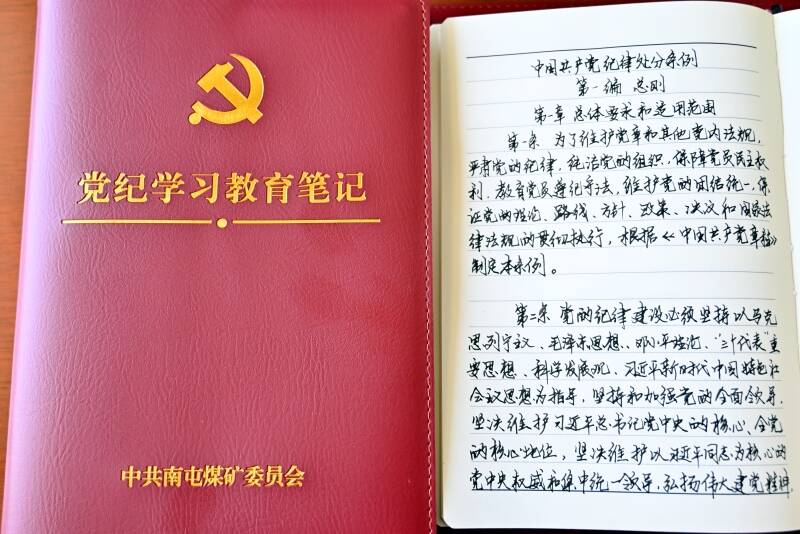 党纪学习教育笔记
中共南屯煤矿委员会
中国共产党纪律处分条例
第一编 总则
第一章 总体要求和适用范围
第一条 为了维护党章和其他党内法规，
严肃党的纪律，纯洁党的组织，保障党员民主权
利，教育党员遵纪守法，维护党的团结统一，保
证党的理论、路线、方针、政策、决议和国家法
律法规的贯彻执行，根据《中国共产党章程》
制定本条例。
第二条 党的纪律建设必须坚持以马克
思列宁主义、毛泽东思想、邓小平理论、“三个代表”重
要思想、科学发展观、习近平新时代中国特色社
会主义思想为指导，坚持和加强党的全面领导，
坚决维护习近平总书记党中央的核心、全党
的核心地位，坚决维护以习近平同志为核心的
党中央权威和集中统一领导，弘扬伟大建党精神，